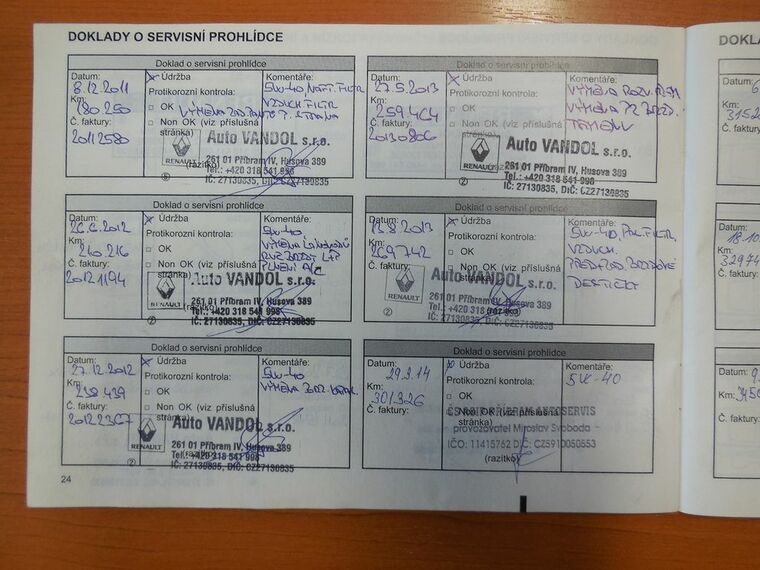 DOKLADY O SERVISNÍ PROHLÍDCE
Doklad o servisní prohlídce
Datum:
8.12.2011
Km:
180 250
Č. faktury:
20112580
Údržba
Protikorozní kontrola:
OK
Non OK (viz příslušná
stránka)
Komentáře:
5W-40, NAFT. FILTR
VZDUCH. FILTR
VÝMĚNA
Auto VANDOL s.r.o.
261 01 Příbram IV, Husova 389
Tel.: +420 318 541 998
IČ: 27130835, DIČ: CZ27130835
RENAULT
(razítko)
Doklad o servisní prohlídce
Datum:
26.6.2012
Km:
210 216
Č. faktury:
20121194
Údržba
Protikorozní kontrola:
OK
Non OK (viz příslušná
stránka)
Komentáře:
5W-40
VÝMĚNA
PLNĚNÍ A/C
Auto VANDOL s.r.o.
261 01 Příbram IV, Husova 389
Tel.: +420 318 541 998
IČ: 27130835, DIČ: CZ27130835
RENAULT
(razítko)
Doklad o servisní prohlídce
Datum:
27.12.2012
Km:
238 439
Č. faktury:
20122367
Údržba
Protikorozní kontrola:
OK
Non OK (viz příslušná
stránka)
Komentáře:
5W-40
VÝMĚNA BRZ.
Auto VANDOL s.r.o.
261 01 Příbram IV, Husova 389
Tel.: +420 318 541 998
IČ: 27130835, DIČ: CZ27130835
RENAULT
(razítko)
24
Doklad o servisní prohlídce
Datum:
27.5.2013
Km:
259 404
Č. faktury:
20130806
Údržba
Protikorozní kontrola:
OK
Non OK (viz příslušná
stránka)
Komentáře:
VÝMĚNA ROZV.
VÝMĚNA PŘ. BRZD.
Auto VANDOL s.r.o.
261 01 Příbram IV, Husova 389
Tel.: +420 318 541 998
IČ: 27130835, DIČ: CZ27130835
RENAULT
(razítko)
Doklad o servisní prohlídce
Datum:
8.2013
Km:
269 742
Č. faktury:
Údržba
Protikorozní kontrola:
OK
Non OK (viz příslušná
stránka)
Komentáře:
5W-40,
VZDUCH.
BRZDOVÉ
DESTIČKY
Auto VANDOL s.r.o.
261 01 Příbram IV, Husova 389
Tel.: +420 318 541 998
IČ: 27130835, DIČ: CZ27130835
RENAULT
(razítko)
Doklad o servisní prohlídce
Datum:
29.3.14
Km:
301 326
Č. faktury:
Údržba
Protikorozní kontrola:
OK
Non OK (viz příslušná
stránka)
Komentáře:
5W-40
AUTOSERVIS
- provozovatel Miroslav Svoboda -
IČO: 11415762 DIČ: CZ5910050853
(razítko)
DOKLA
Datum:
Km:
3152
Datum:
18.10.
Km:
32974
Datum:
Km: